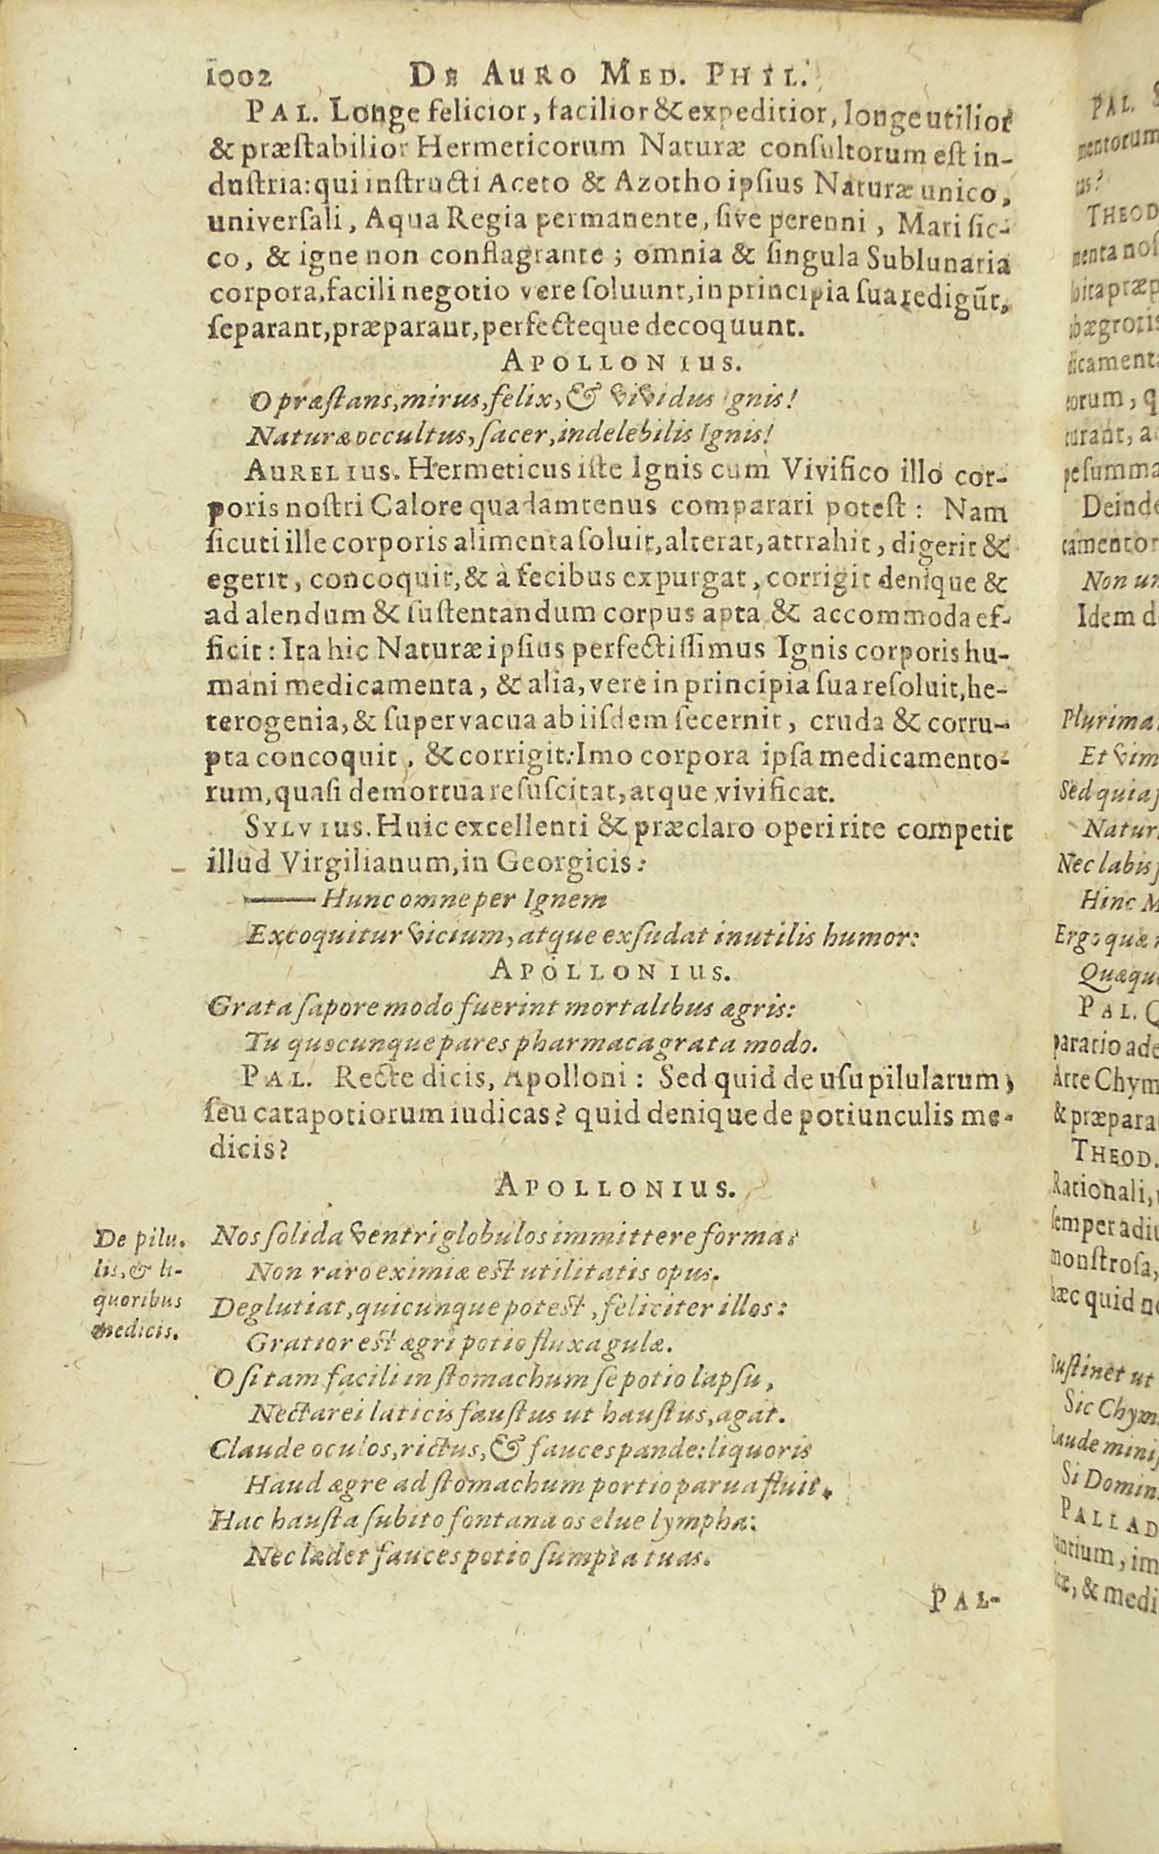 1002 DE AURO MED. PHIL.
PAL. Longe felicior, facilior & expeditior, longe utilior
& præstabilior Hermeticorum Naturæ consultorum est in-
dustria: qui instructi Aceto & Azotho ipsius Naturæ unico,
universali, Aqua Regia permanente, sive perenni, Mari sic-
co, & igne non conflagrante; omnia & singula Sublunaria
corpora, facili negotio vere soluunt, in principia sua redigũt,
separant, præparant, perfecteque decoquunt.
APOLLONIUS.
O præstans, mirus, felix, & vividus Ignis!
Naturæ occultus, sacer, indelebilis Ignis!
AURELIUS. Hermeticus iste Ignis cum Vivifico illo cor-
poris nostri Calore quadamtenus comparari potest: Nam
sicuti ille corporis alimenta soluit, alterat, attrahit, digerit &
egerit, concoquit, & à fecibus expurgat, corrigit denique &
ad alendum & sustentandum corpus apta & accommoda ef-
ficit: Ita hic Naturæ ipsius perfectissimus Ignis corporis hu-
mani medicamenta, & alia, vere in principia sua resoluit, he-
terogenia, & supervacua ab iisdem secernit, cruda & corru-
pta concoquit, & corrigit: Imo corpora ipsa medicamento-
rum, quasi demortua resuscitat, atque vivificat.
SYLVIUS. Huic excellenti & præclaro operi rite competit
illud Virgilianum, in Georgicis:
—— Hunc omne per Ignem
Excoquitur vicium, atque exsudat inutilis humor:
APOLLONIUS.
Grata sapore modo fuerint mortalibus ægris:
Tu quæcunque pares pharmaca grata modo.
PAL. Recte dicis, Apolloni: Sed quid de usu pilularum,
seu catapotiorum iudicas? quid denique de potiunculis me-
dicis?
APOLLONIUS.
De pilu-
lis, & li-
quoribus
medicis.
Nos solida ventri globulos immittere forma:
Non raro eximiæ est utilitatis opus.
Deglutiat, quicunque potest, feliciter illos:
Gratior est ægri potio fluxa gulæ.
O si tam facili in stomachum se potio lapsu,
Nectarei laticis faustus ut haustus, agat.
Claude oculos, rictus, & fauces pande: liquoris
Haud ægre ad stomachum portio parua fluit.
Hac hausta subito fontana os elue lympha:
Nec lædet fauces potio sumpta tuas.
PAL-
PAL.
mentorum
THEOD
menta nos
Deinde
Non un
Idem d
Plurima
Et vim
Sed quia
Natur
Nec labis
Hinc M
Ergo quæ
Quæqu
PAL. Q
paratio ade
Arte Chym
& præpara
THEOD.
Rationali,
semper adiu
monstrosa,
hæc quid ne
Sustinet ut
Sic Chym
Laude mini
Si Domin
PALLAD
antium, im
& medi